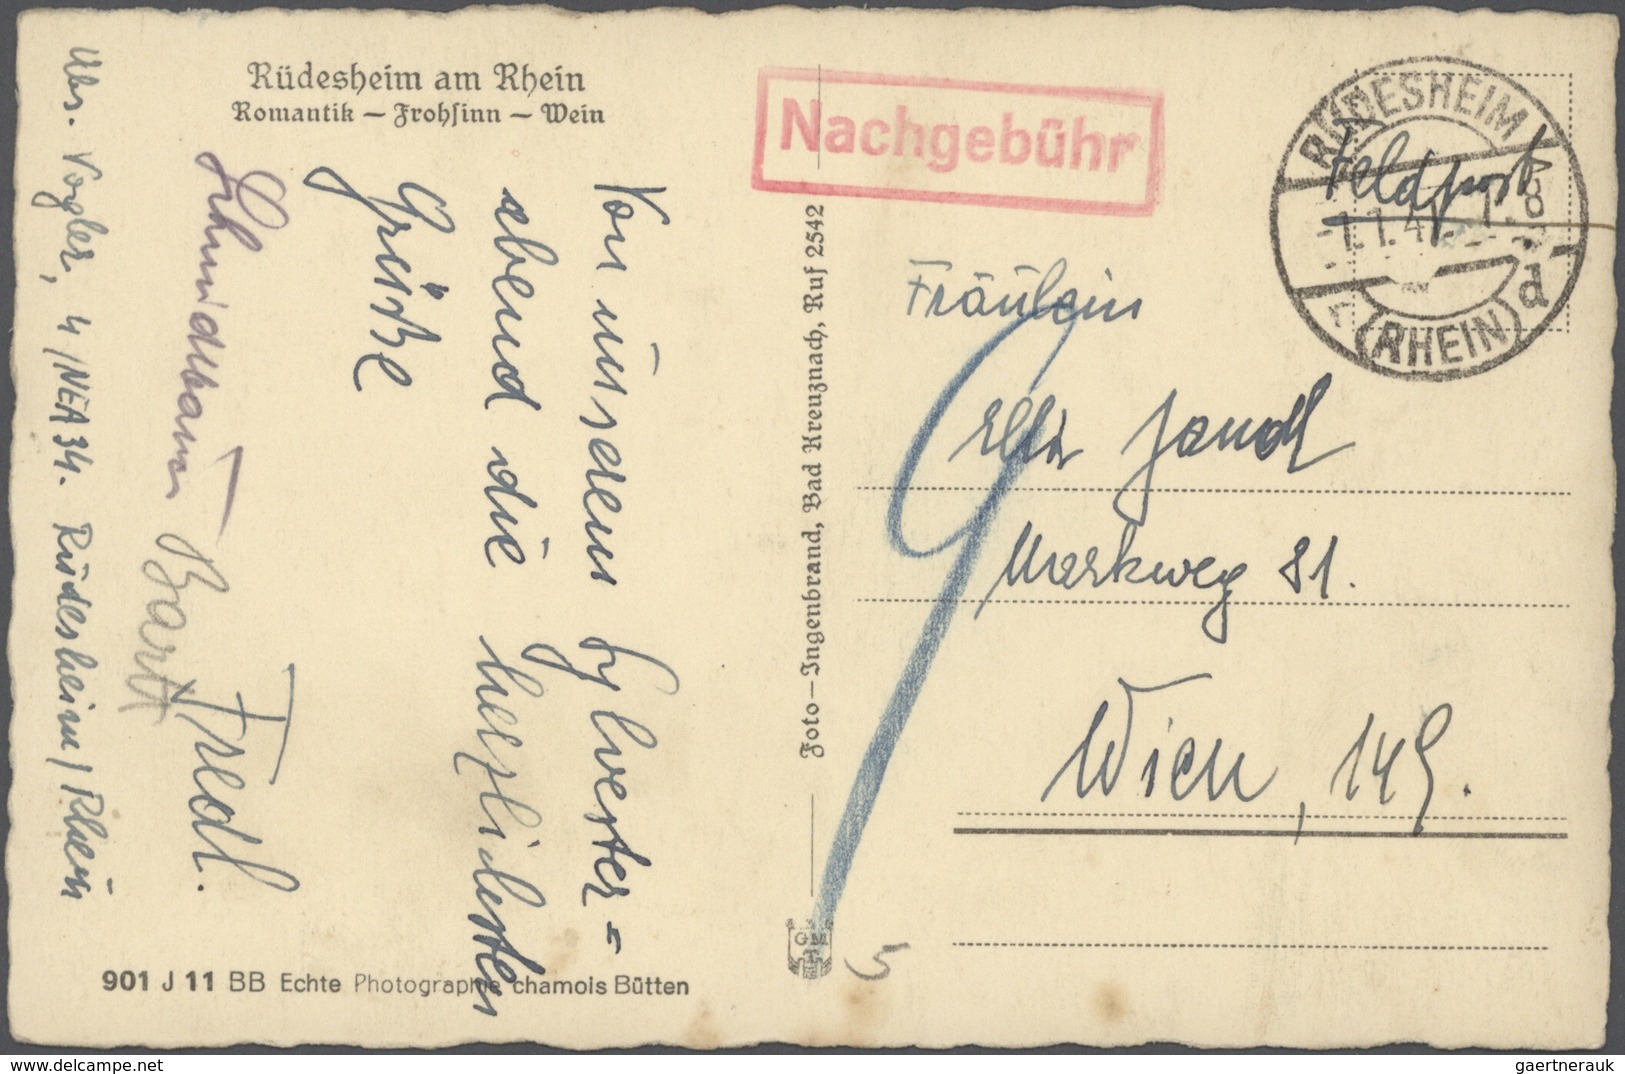 Rüdesheim am Rhein
Romantik – Frohsinn – Wein
Abs. Vogler, 4/NEA 34. Rüdesheim/Rhein
Von unserem Sylwester=
abend die herzlichsten
Grüße
Schmidtbauer
Bartl
Fredl.
901 J 11 BB Echte Photographie chamois Bütten
Foto–Ingenbrand, Bad Kreuznach, Ruf 2542
Nachgebühr
RÜDESHEIM
(RHEIN)
d
-1.1.41.-
Feldpost
Fräulein
Jandl
Markweg 81.
Wien, 149.
9
5
delcampe.net
gaertnerauk